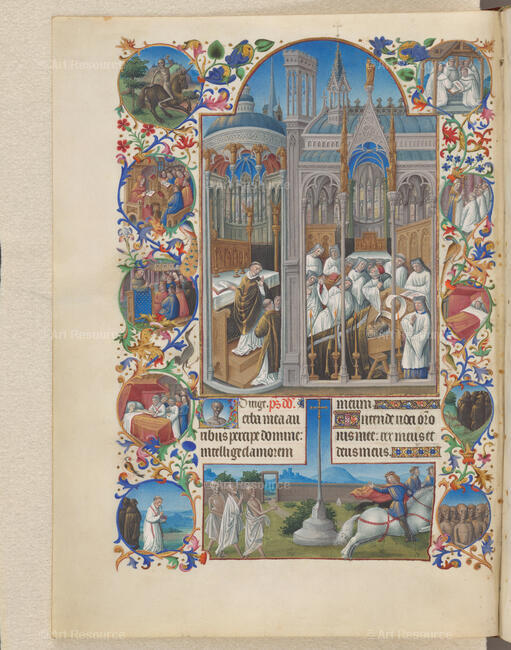 © Art Resource
© Art Resource
Dirige. ps dd.
erba mea au
ribus percipe domine:
intellige clamorem
meum.
Intende voci oro
nis mee: rex meus et
deus meus.
© Art Resource
© Art Resource